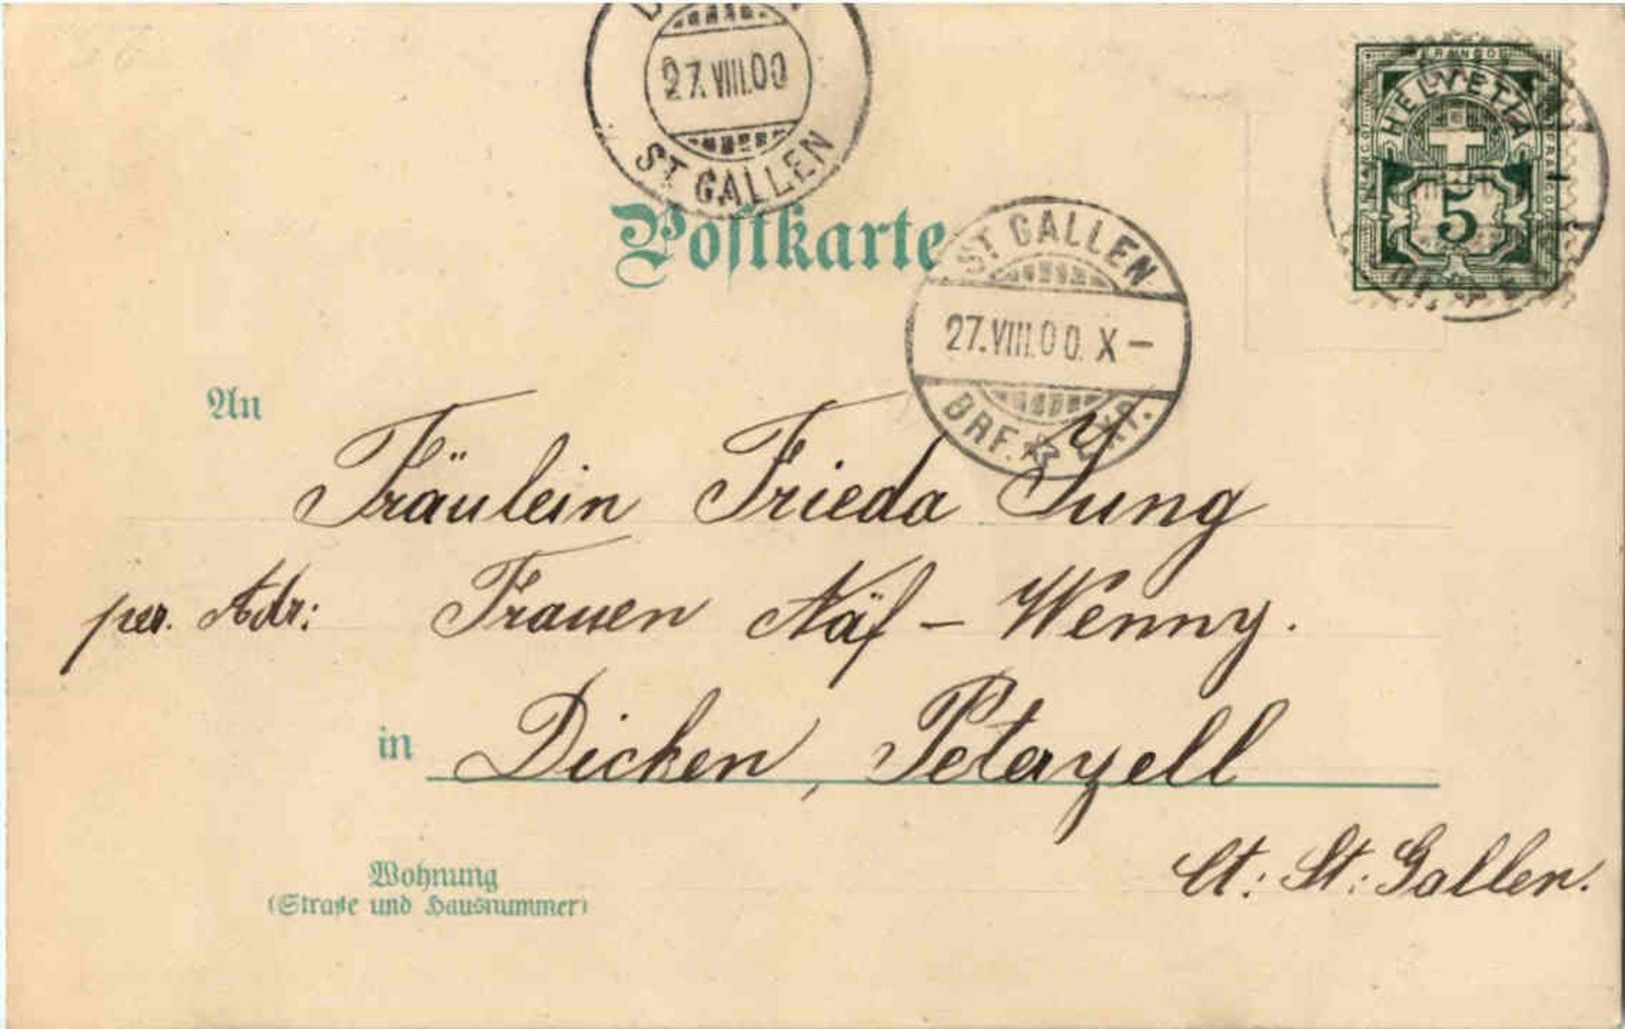 27.VIII.00
ST GALLEN
HELVETIA
FRANCO
5
Postkarte
ST GALLEN
27.VIII.00.X–
BRF.
An
Fräulein Frieda Jung
per. Adr: Frauen Näf – Wenny.
in Dicken, Peterzell
Ct: St: Gallen.
Wohnung
(Straße und Hausnummer)